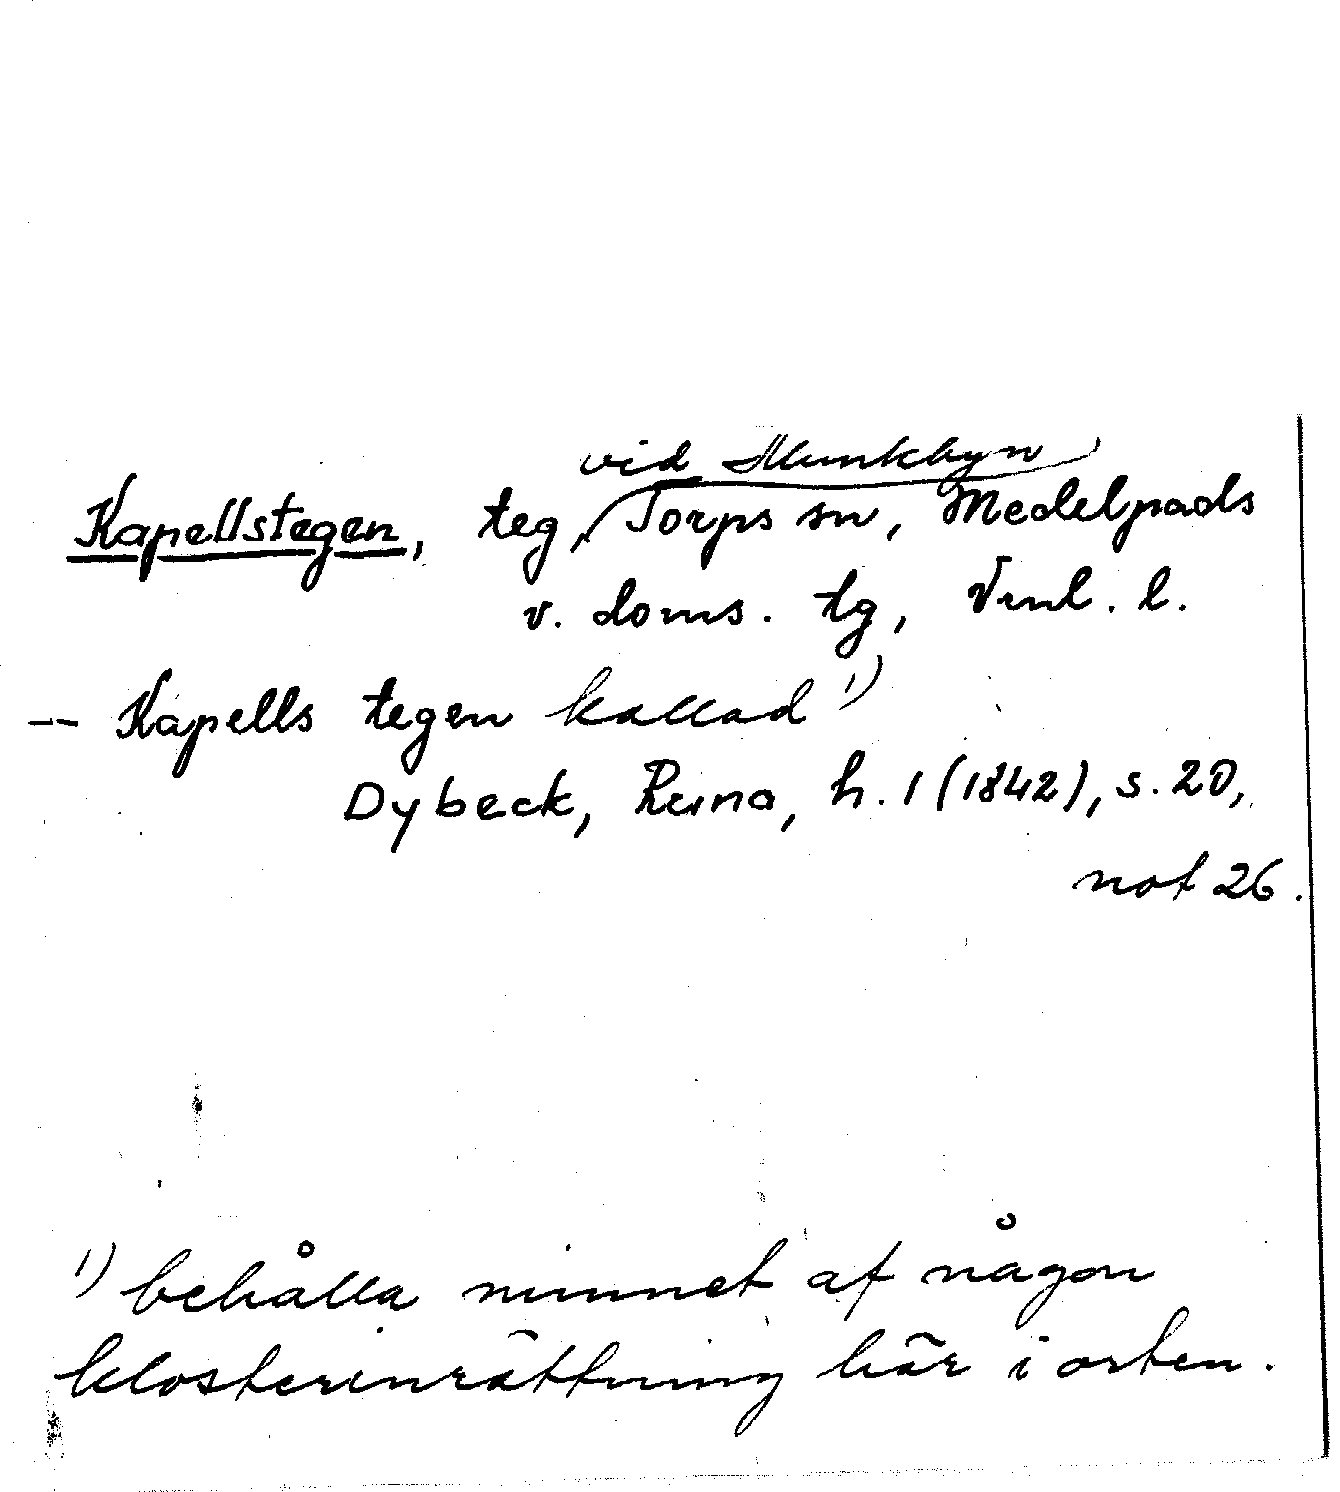 vid Munkbyn
Kapellstegen, teg, Torps sn, Medelpads
v. doms. tg, Vnl. l.
-- Kapells tegen kallad 1)
Dybeck, Runa, h. 1 (1842), s. 20,
not 26.
1) behålla minnet af någon
klosterinrättning här i orten.